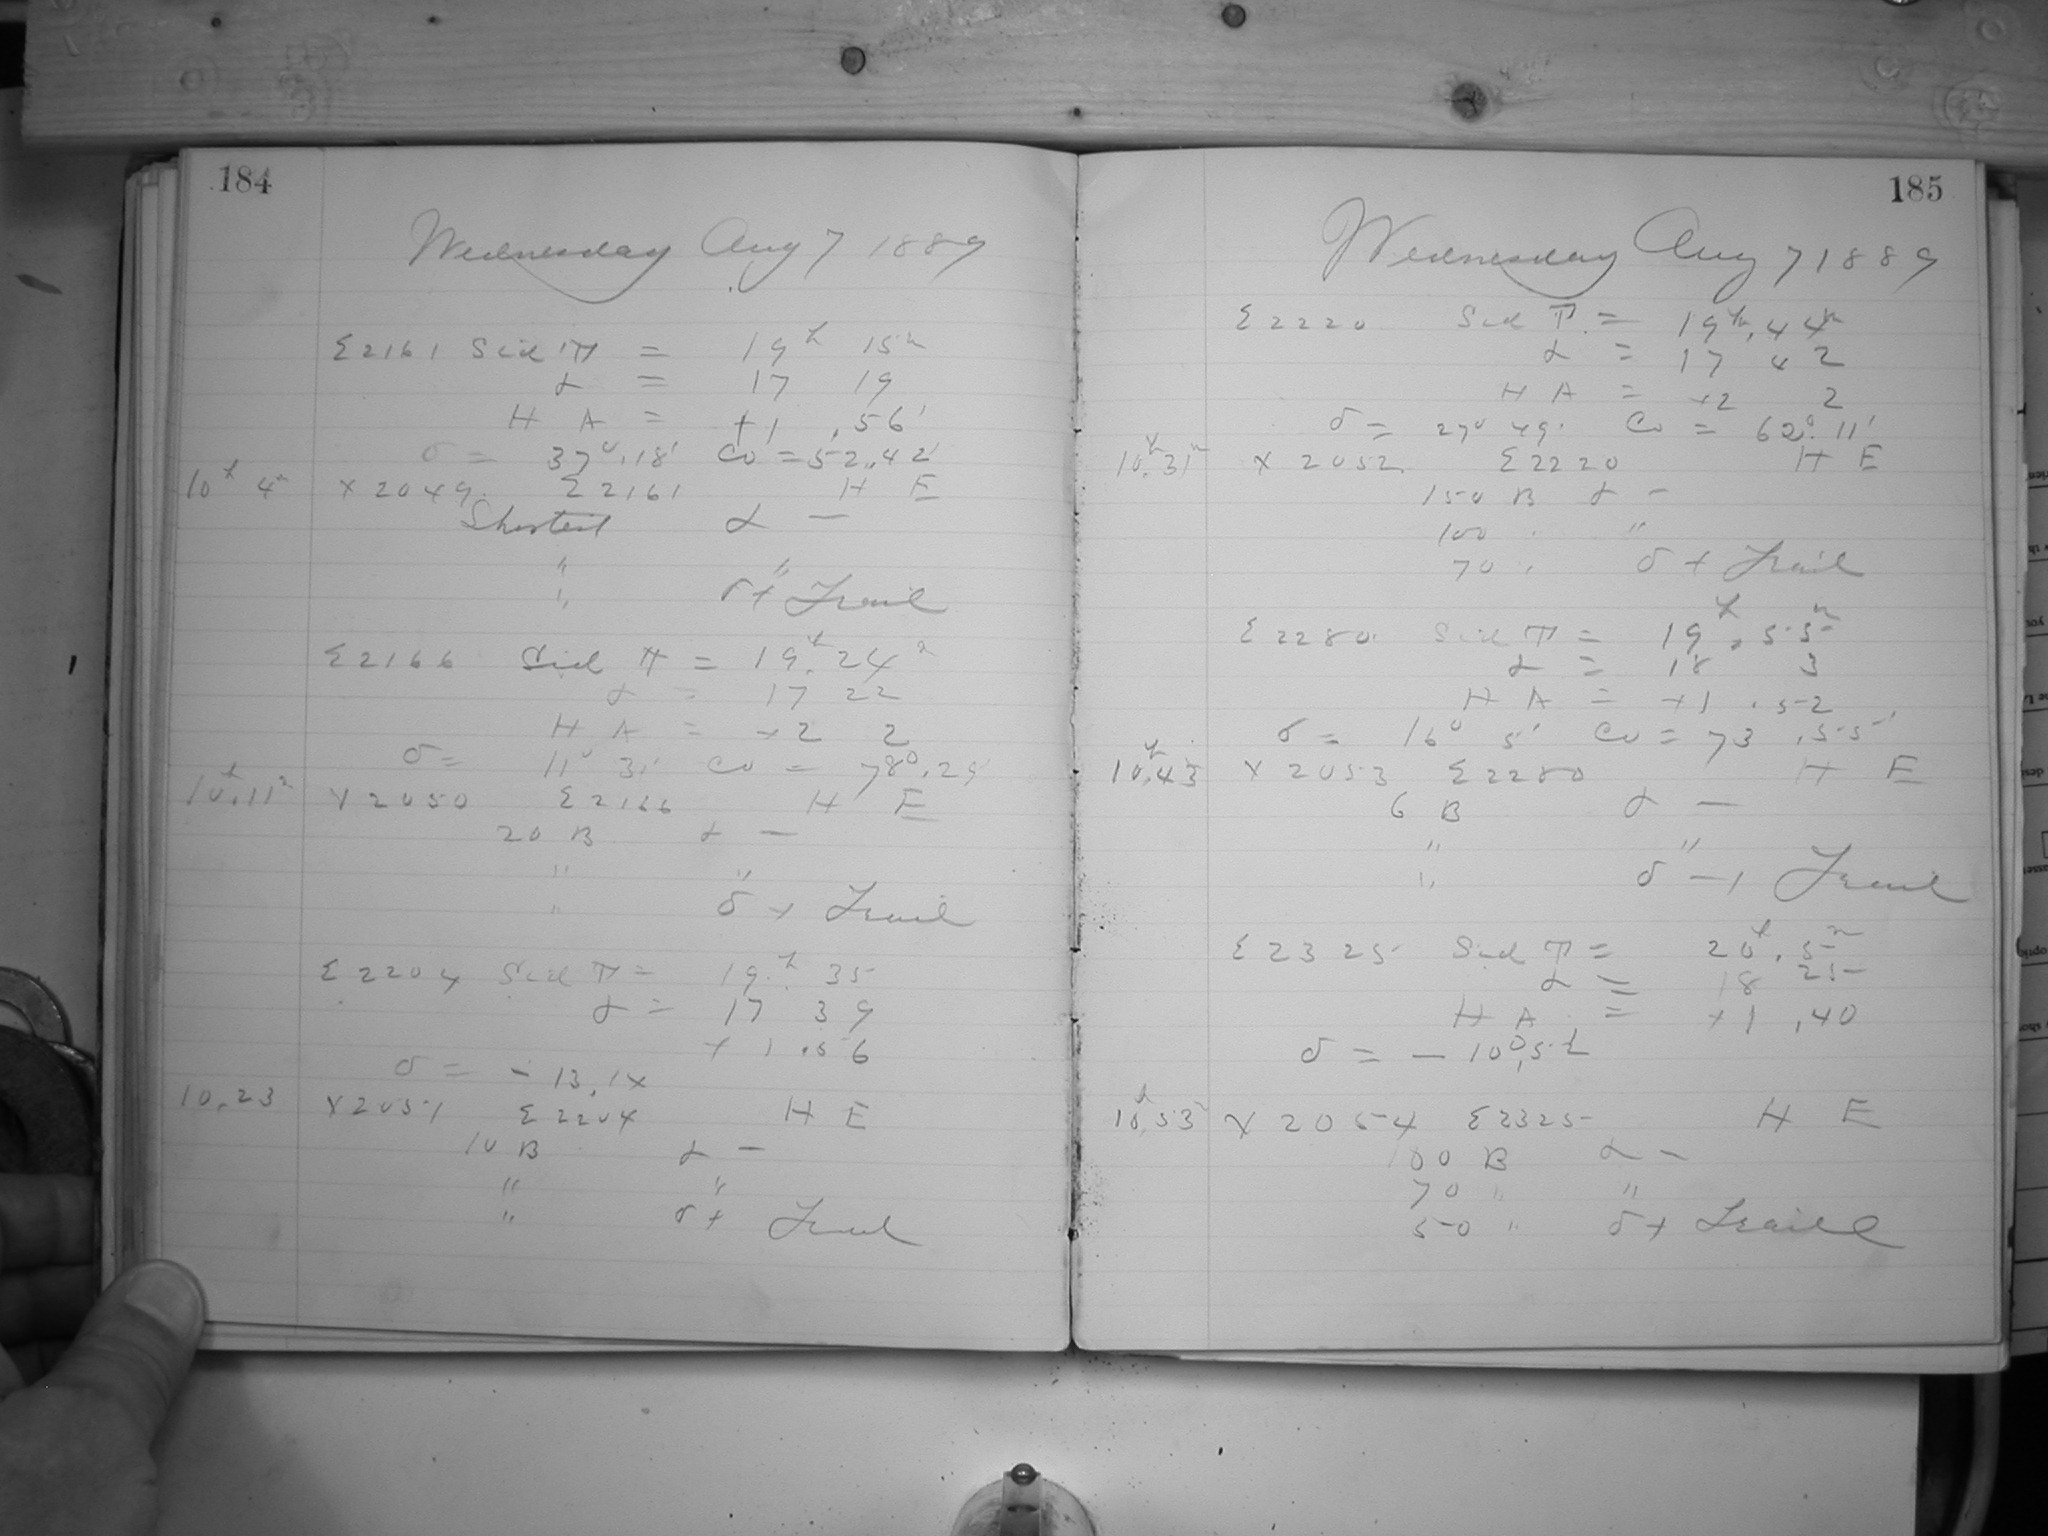 184
Wednesday Aug 7 1889
Σ2161 Sid T = 19h 15m
α = 17 19
H A = +1 . 56'
δ = 37°.18' Co = 52.42'
10h 4m X 2049. Σ2161 H E
Shortest α —
" "
" δ + Trail
Σ2166 Sid T = 19h. 24m
α = 17 22
H A = +2 2
δ = 11° 31' Co = 78°.29'
10h.11m X 2050 Σ2166 H E
20 B α —
" "
" δ + Trail
Σ2204 Sid T = 19.h 35
α = 17 39
+ 1 . 56
δ = - 13.14
10.23 X 2051 Σ2204 H E
10 B α —
" "
" δ + Trail
185
Wednesday Aug 7 1889
Σ2220 Sid T. = 19h. 44m
α = 17 42
H A = +2 2
δ = 27° 49' Co = 62°. 11'
10h.31m X 2052 Σ2220 H E
150 B α —
100 " "
70 " δ + Trail
Σ2280. Sid T = 19h. 55m
α = 18 3
H A = +1 . 52
δ = 16° 5' Co = 73 . 55'
10h.43 X 2053 Σ2280 H E
6 B α —
" "
" δ — 1 Trail
Σ2325 Sid T = 20h. 5m
α = 18 25
H A = +1 . 40
δ = — 10°.52
10h.53m X 2054 Σ2325 H E
100 B α —
70 " "
50 " δ + Trail